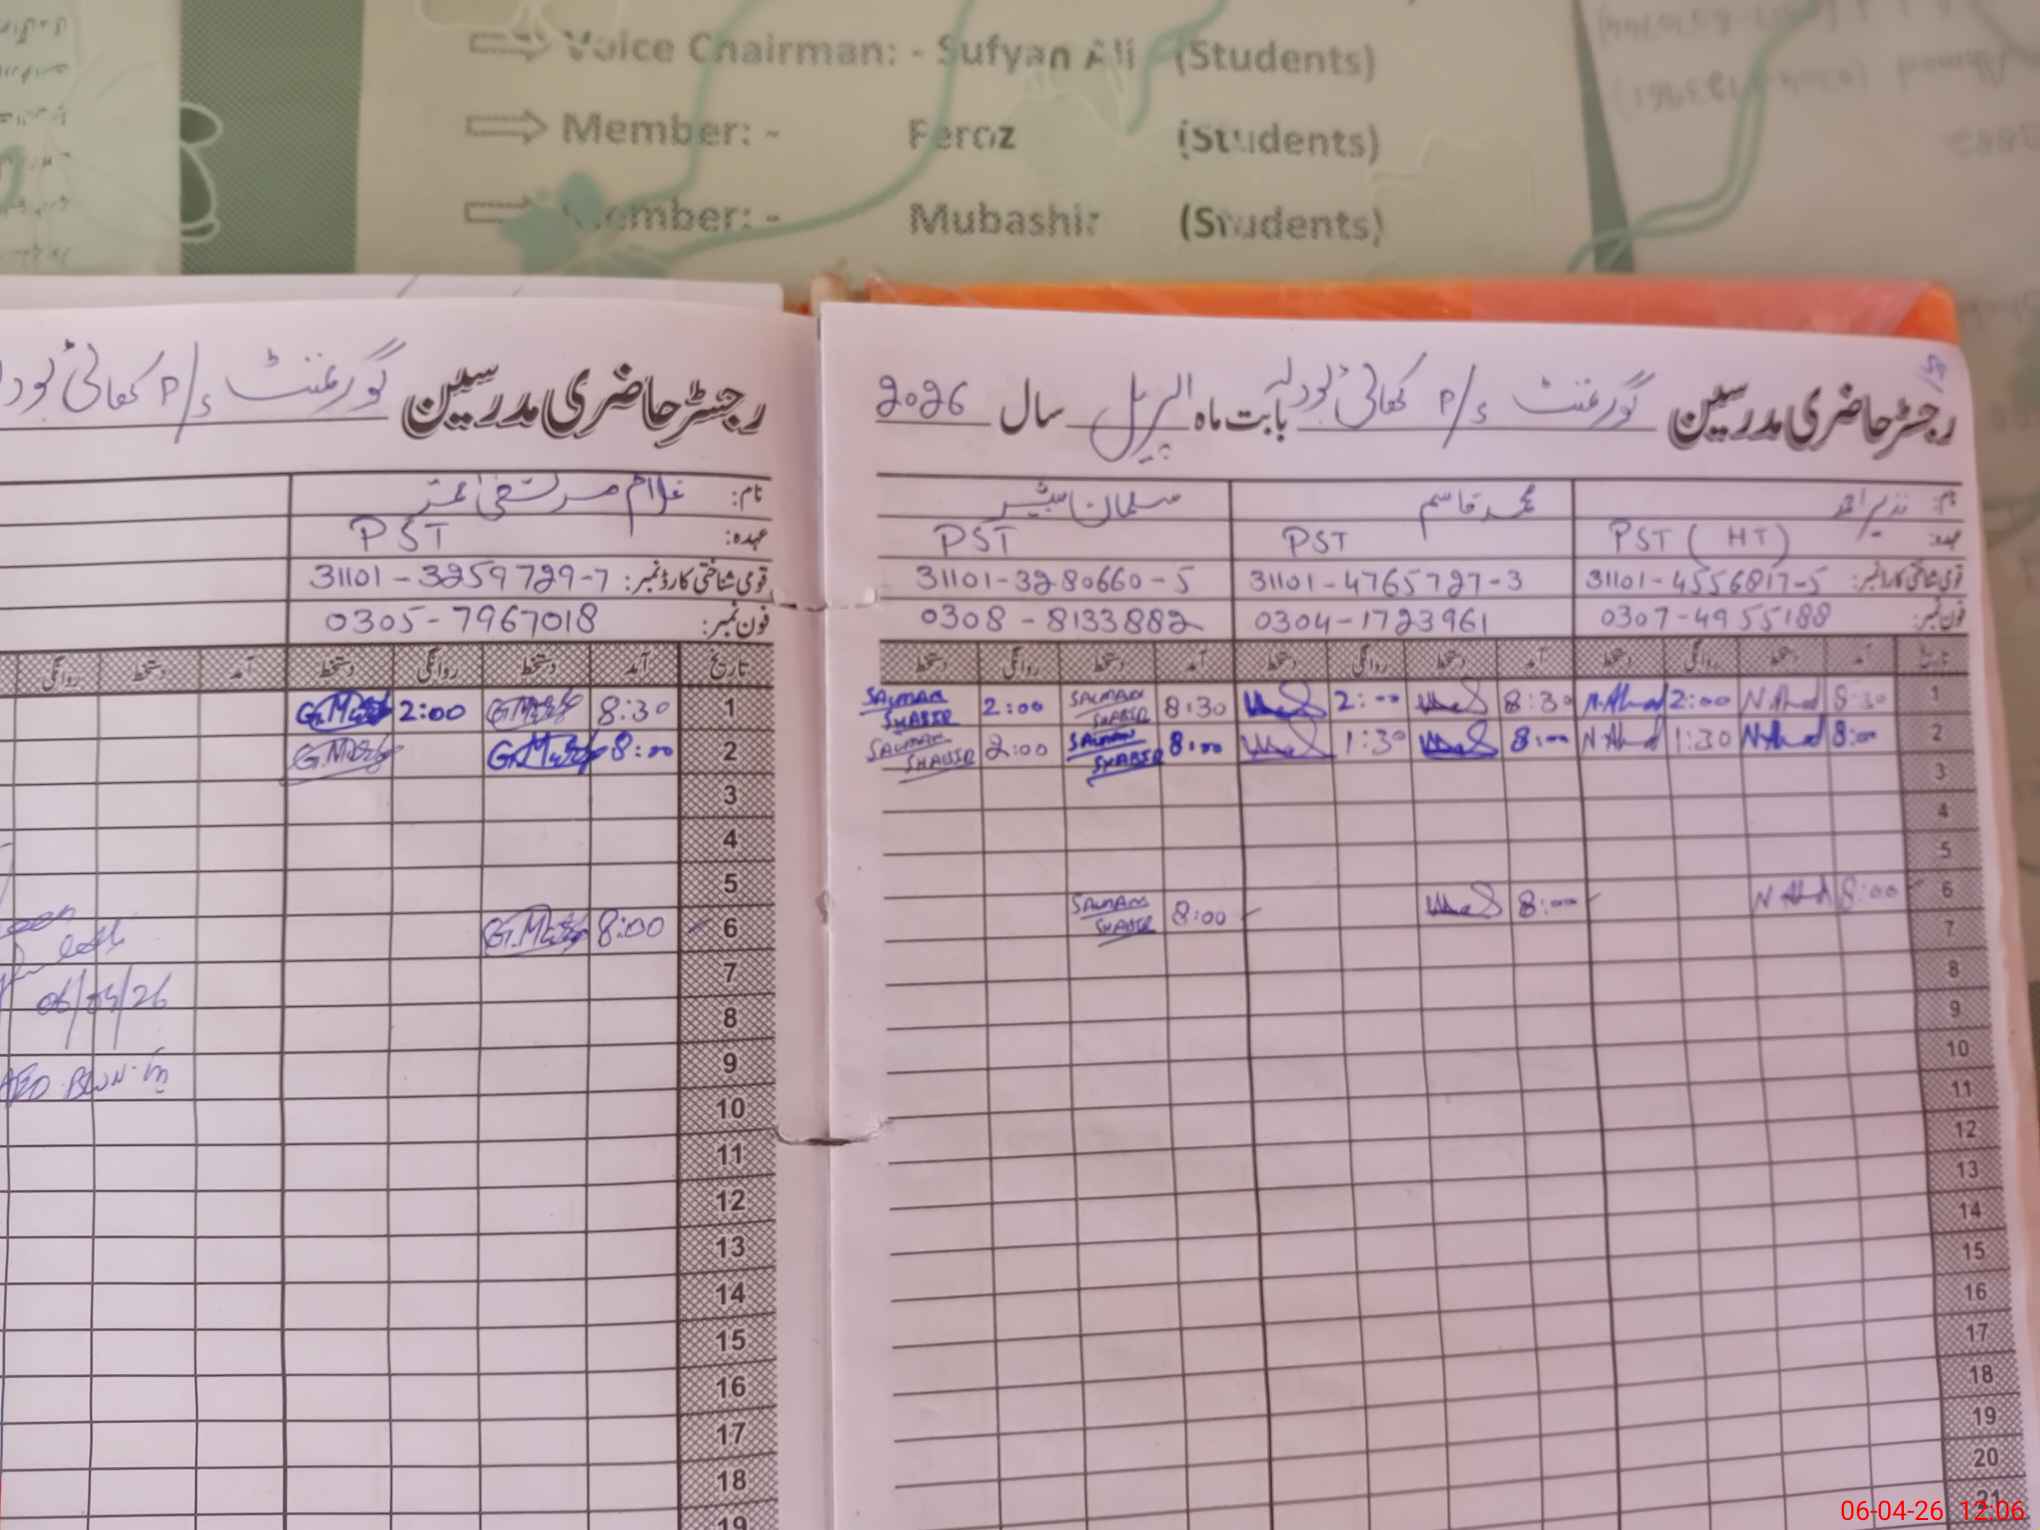 Voice Chairman: - Sufyan Ali (Students)
Member: - Feroz (Students)
Member: - Mubashir (Students)
رجسٹر حاضری مدرسین گورنمنٹ P/S کھائی بودلہ بابت ماہ اپریل سال 2026
نام: نذیر احمد محمد قاسم سلمان شبیر
عہدہ: PST (HT) PST PST
قومی شناختی کارڈ نمبر: 31101-4556817-5 31101-4765727-3 31101-3280660-5
فون نمبر: 0307-4955188 0304-1723961 0308-8133882
تاریخ آمد دستخط روانگی دستخط آمد دستخط روانگی دستخط آمد دستخط روانگی دستخط
1 8:30 N.Ahmad 2:00 N.Ahmad 8:30 2:00 8:30 SALMAN SHABIR 2:00 SALMAN SHABIR
2 8:00 N.Ahmad 1:30 N.Ahmad 8:00 1:30 8:00 SALMAN SHABIR 2:00 SALMAN SHABIR
3
4
5
6 8:00 N.Ahmad 8:00 8:00 SALMAN SHABIR
7
8
9
10
11
12
13
14
15
16
17
18
19
20
21
رجسٹر حاضری مدرسین گورنمنٹ P/S کھائی
نام: غلام مرتضی
عہدہ: PST
قومی شناختی کارڈ نمبر: 31101-3259729-7
فون نمبر: 0305-7967018
تاریخ آمد دستخط روانگی دستخط آمد دستخط روانگی
1 8:30 2:00
2 8:00
3
4
5
6 8:00
7
8
9
10
11
12
13
14
15
16
17
18
19
06/04/26
06-04-26 12:06